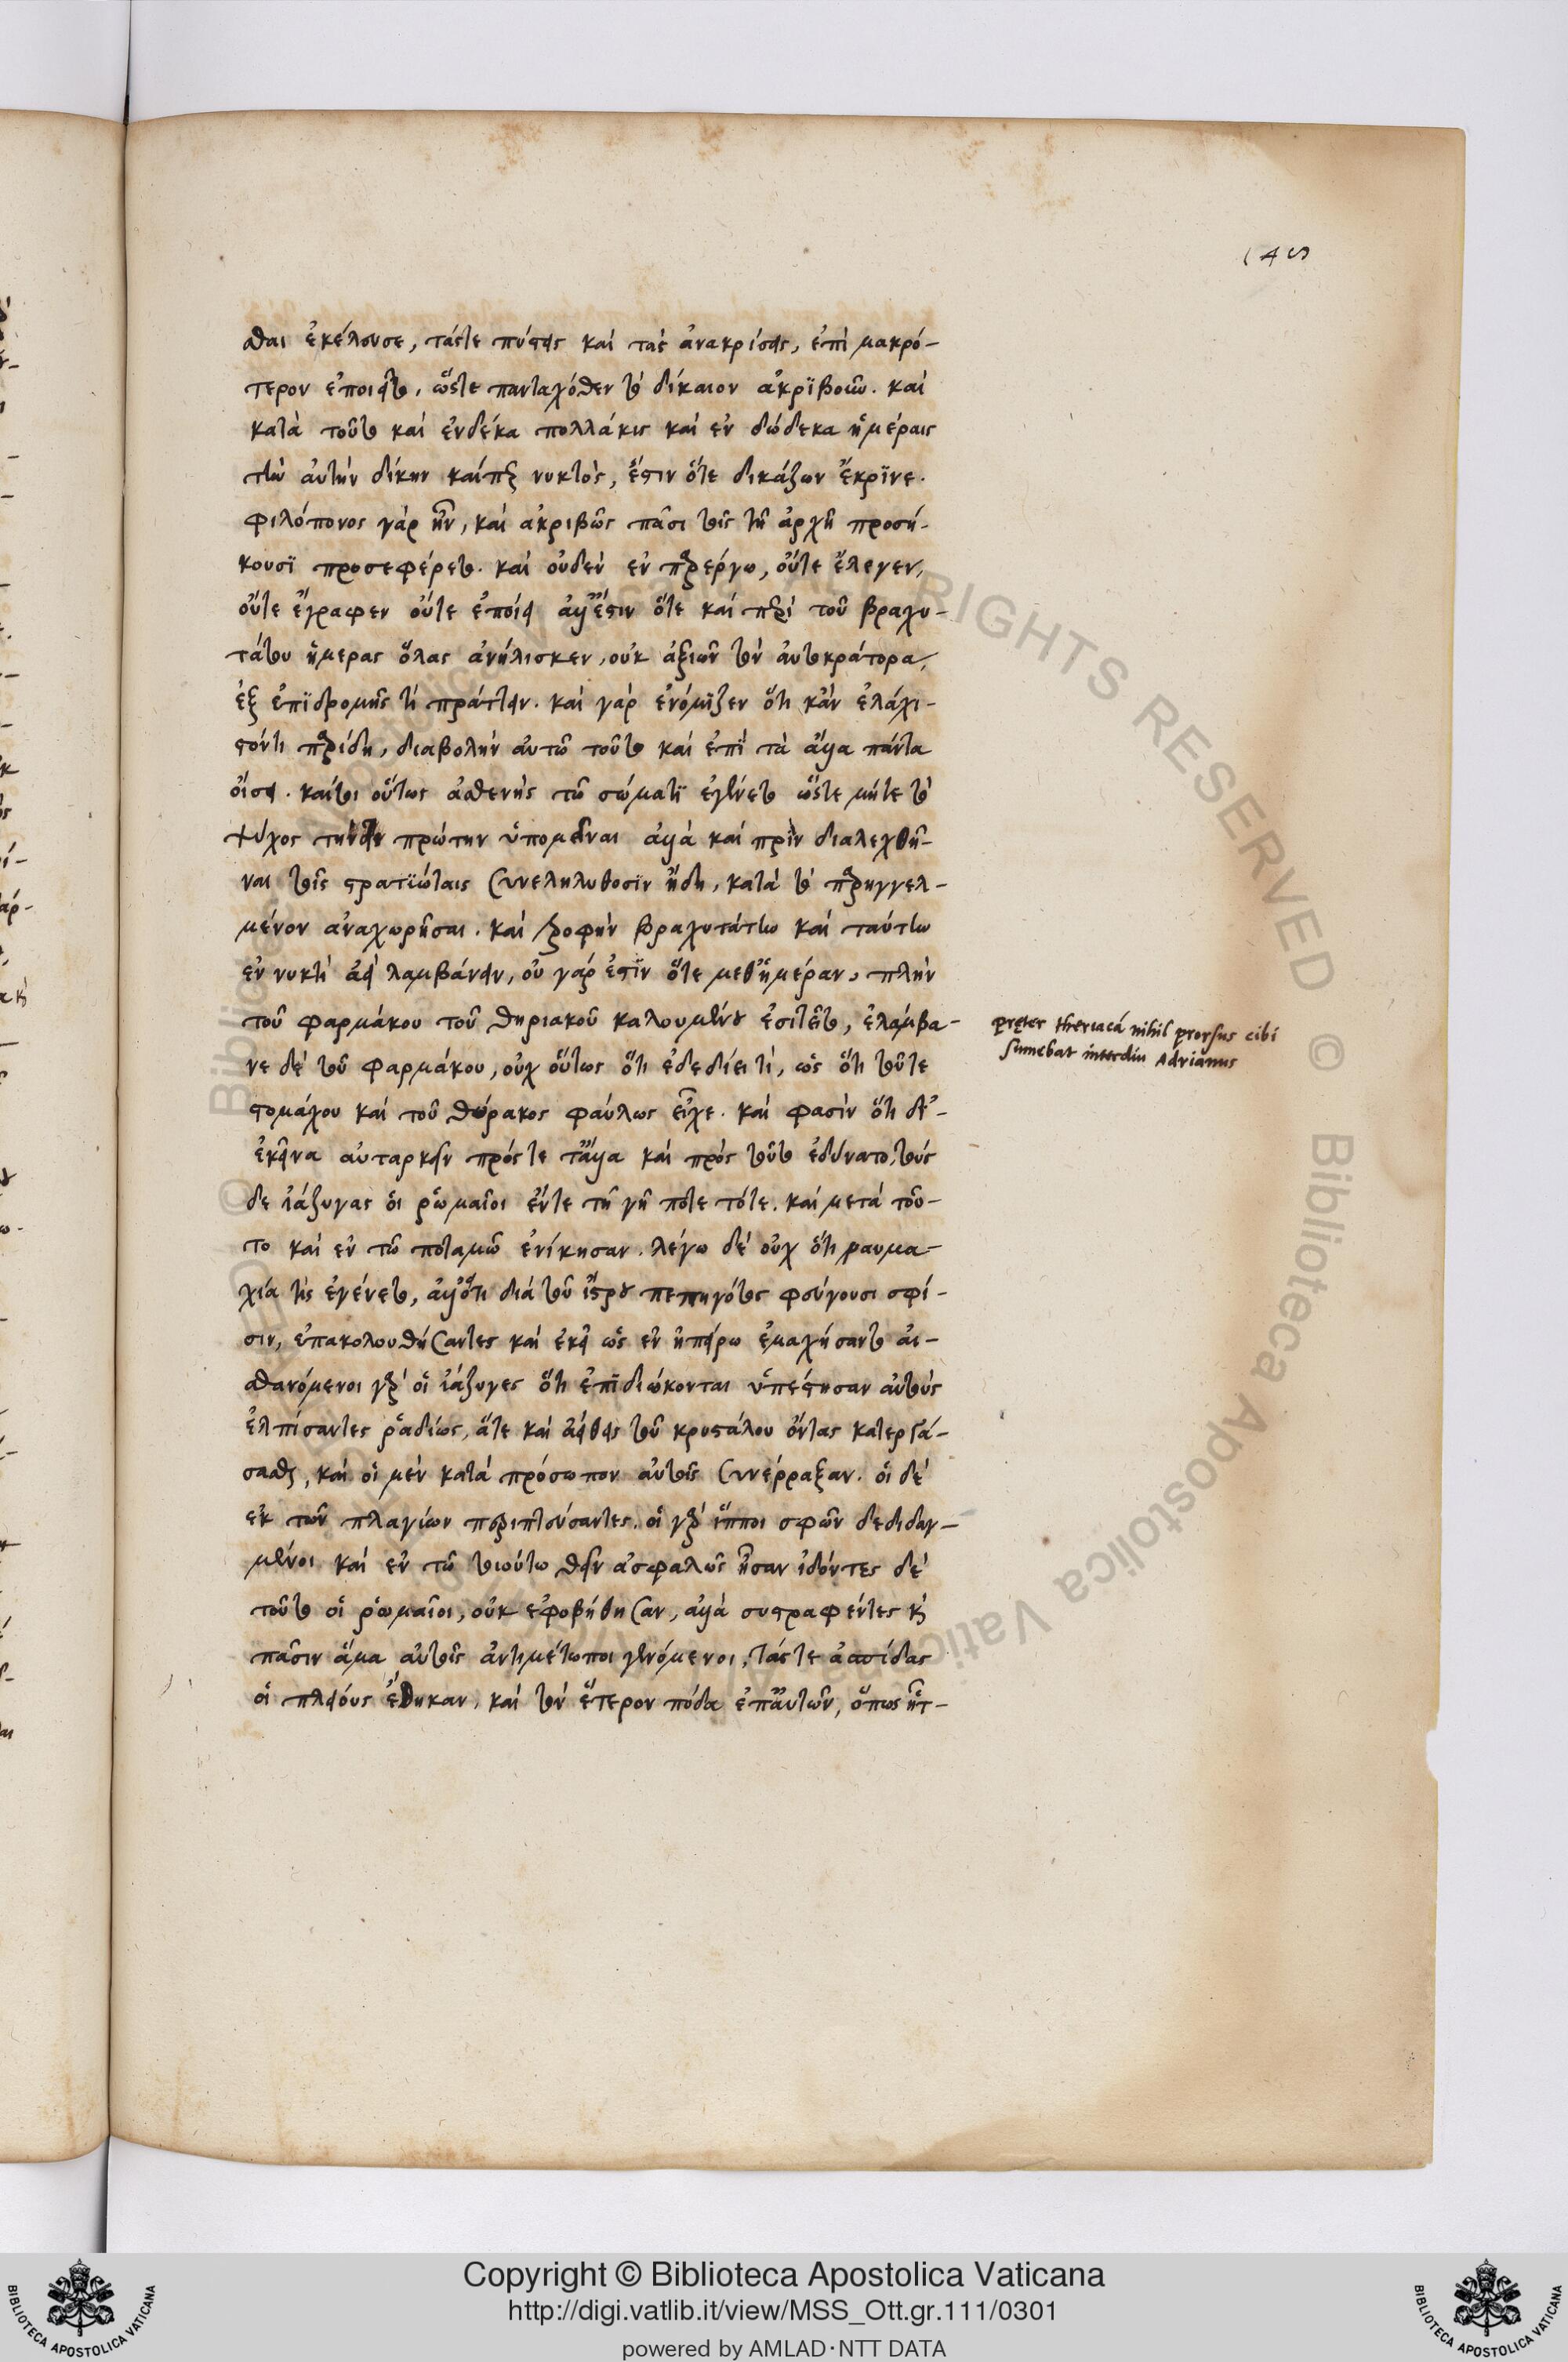 145
σθαι ἐκέλευσε, τάςτε πύστεις καὶ τὰς ἀνακρίσεις, ἐπὶ μακρό-
τερον ἐποιεῖτο, ὥστε πανταχόθεν τὸ δίκαιον ἀκριβοῦν. καὶ
κατὰ τοῦτο καὶ ἕνδεκα πολλάκις καὶ ἐν δώδεκα ἡμέραις
τὴν αὐτὴν δίκην καίπερ νυκτὸς, ἔστιν ὅτε δικάζων ἔκρινε.
φιλόπονος γὰρ ἦν, καὶ ἀκριβῶς πᾶσι τοῖς τῇ ἀρχῇ προσή-
κουσϊ προσεφέρετο. καὶ οὐδὲν ἐν παρέργω, οὔτε ἔλεγεν,
οὔτε ἔγραφεν οὔτε ἐποίει ἀλλ' ἔστιν ὅτε καὶ περὶ τοῦ βραχυ-
τάτου ἡμέρας ὅλας ἀνήλισκεν, οὐκ ἀξιῶν τὸν αὐτοκράτορα,
ἐξ ἐπϊδρομῆς τὶ πράττειν. καὶ γὰρ ἐνόμϊζεν ὅτι κἂν ἐλάχι-
στόντι παρίδη, διαβολὴν αὐτῶ τοῦτο καὶ ἐπῒ τὰ ἄλλα πάντα
οἴσει. καίτοι οὕτως ἀσθενὴς τῶ σώματϊ ἐγένετο ὥστε μήτε τὸ
ψύχος τὴν πρώτην ὑπομεῖναι ἀλλὰ καὶ πρὶν διαλεχθῆ-
ναι τοῖς στρατϊώταις συνεληλυθοσϊν ἤδη, κατὰ τὸ παρηγγελ-
μένον ἀναχωρῆσαι. καὶ τροφὴν βραχυτάτην καὶ ταύτην
ἐν νυκτὶ ἀεὶ λαμβάνειν, οὐ γάρ ἐστϊν ὅτε μεθ' ἡμέραν, πλὴν
τοῦ φαρμάκου τοῦ θηριακοῦ καλουμένου ἐσιτεῖτο, ἐλάμβα-
νε δὲ τοῦ φαρμάκου, οὐχ οὕτως ὅτι ἐδεδίει τὶ, ὡς ὅτι τοῦτε
στομάχου καὶ τοῦ θώρακος φαύλως εἶχε. καὶ φασὶν ὅτι δι'-
ἐκεῖνα αὐταρκεῖν πρός τε τἄλλα καὶ πρὸς τοῦτο ἐδύνατο, τοὺς
δε ἰάζυγας οἱ ῥωμαῖοι ἔντε τῇ γῇ πότε τότε. καὶ μετὰ τοῦ-
το καὶ ἐν τῶ ποταμῶ ἐνίκησαν. λέγω δὲ οὐχ ὅτι ναυμα-
χία τὶς ἐγένετο, ἀλλ' ὅτι διὰ τοῦ ἴστρου πεπηγότος φεύγουσι σφί-
σιν, ἐπακολουθήσαντες καὶ ἐκεῖ ὡς ἐν ἠπείρω ἐμαχήσαντο αἰ-
σθανόμενοι γὰρ οἱ ἰάζυγες ὅτι ἐπϊδιώκονται ὑπέστησαν αὐτοὺς
ἐλπίσαντες ῥαδίως, ἅτε καὶ ἀήθεις τοῦ κρυστάλου ὄντας κατεργά-
σασθαι, καὶ οἱ μὲν κατὰ πρόσωπον αὐτοῖς συνέρραξαν. οἱ δὲ
ἐκ τῶν πλαγίων περιππεύσαντες. οἱ γὰρ ἵπποι σφῶν δεδιδαγ-
μένοι καὶ ἐν τῶ τοιούτω θεῖν ἀσφαλῶς ἦσαν ἰδόντες δὲ
τοῦτο οἱ ῥωμαῖοι, οὐκ ἐφοβήθησαν, ἀλλὰ συστραφέντες καὶ
πᾶσιν ἅμα αὐτοῖς ἀντιμέτωποι γενόμενοι, τάς τε ἀσπίδας
οἱ πλείους ἔθηκαν, καὶ τὸν ἕτερον πόδα ἐπ' αὐτῶν, ὅπως ἧτ-
pręter theriacá nihil prorsus cibi
sumebat interdiu Adrianus
© Biblioteca Apostolica Vaticana
RIGHTS RESERVED © Biblioteca Apostolica Vaticana
Copyright © Biblioteca Apostolica Vaticana
http://digi.vatlib.it/view/MSS_Ott.gr.111/0301
powered by AMLAD·NTT DATA
BIBLIOTECA APOSTOLICA VATICANA
BIBLIOTECA APOSTOLICA VATICANA